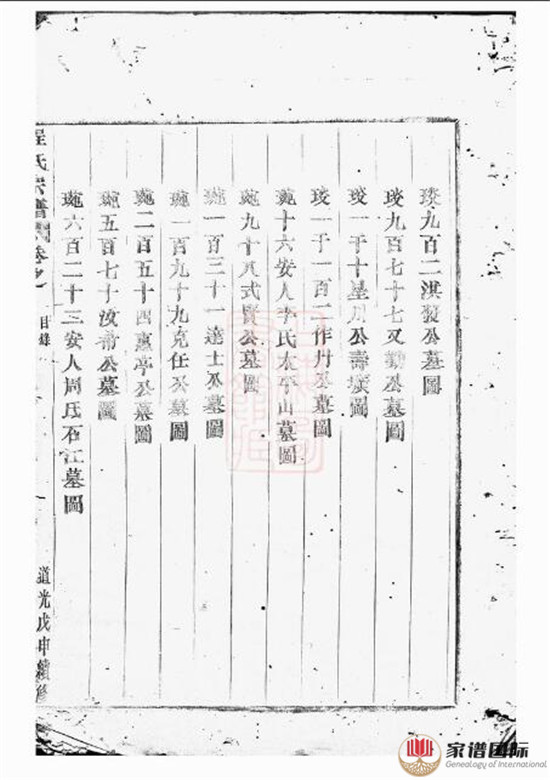 琰九百二淇發公墓圖
琰九百七十七又勤公墓圖
琰一千十星川公壽墳圖
琰一千一百一作舟公墓圖
琬十六安人李氏太平山墓圖
琬九十八式賢公墓圖
琬一百三十一達士公墓圖
琬一百九十九克任公墓圖
琬二百五十四熏亭公墓圖
琬五百七十公墓圖
琬六百二十三安人周氏石江墓圖
程氏宗譜圖卷之
目錄
道光戊申續修
家谱国际
Genealogy of International